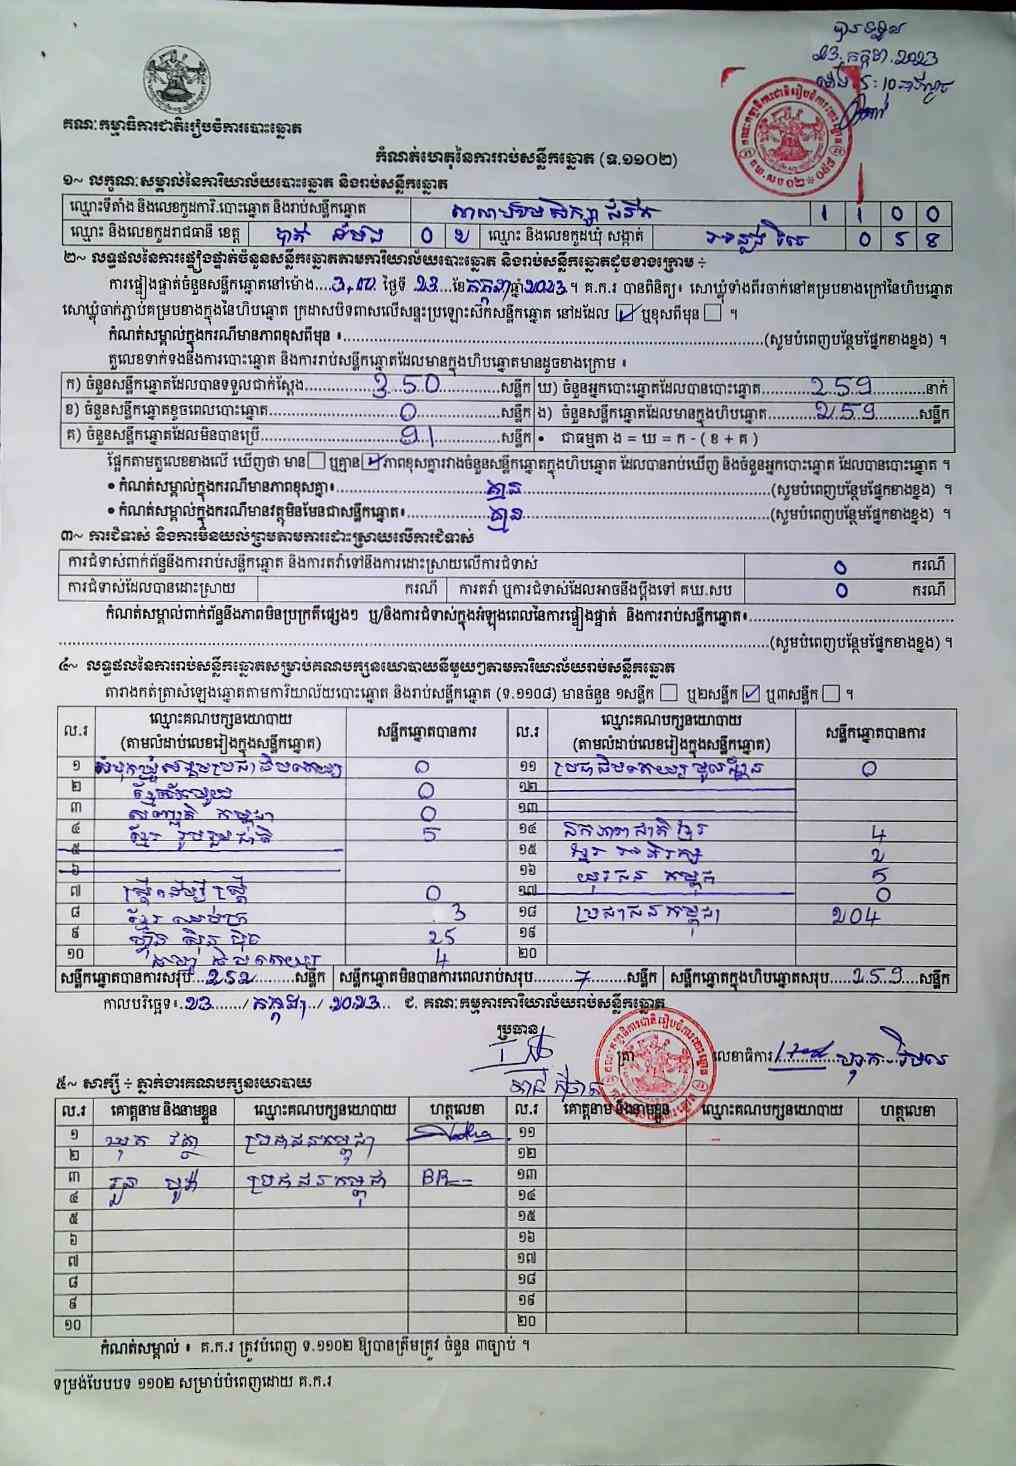 បានទទួល
23.កក្កដា.2023
ម៉ោង 5:10 នាទីល្ងាច
គណៈកម្មាធិការជាតិរៀបចំការបោះឆ្នោត
កំណត់ហេតុនៃការរាប់សន្លឹកឆ្នោត (ទ.១១០២)
១~ លក្ខណៈសម្គាល់នៃការិយាល័យបោះឆ្នោត និងរាប់សន្លឹកឆ្នោត
ឈ្មោះទីតាំង និងលេខកូដការិ.បោះឆ្នោត និងរាប់សន្លឹកឆ្នោត 1 1 0 0
ឈ្មោះ និងលេខកូដរាជធានី ខេត្ត បាត់ដំបង 0 ២ ឈ្មោះ និងលេខកូដឃុំ សង្កាត់ អន្លង់វិល 0 5 8
២~ លទ្ធផលនៃការផ្ទៀងផ្ទាត់ចំនួនសន្លឹកឆ្នោតតាមការិយាល័យបោះឆ្នោត និងរាប់សន្លឹកឆ្នោតដូចខាងក្រោម ÷
ការផ្ទៀងផ្ទាត់ចំនួនសន្លឹកឆ្នោតនៅម៉ោង....3,00 ថ្ងៃទី 23 ខែកក្កដាឆ្នាំ2023។ គ.ក.រ បានពិនិត្យ៖ សោឃ្លុំទាំងពីរចាក់នៅគម្របខាងក្រៅនៃហិបឆ្នោត
សោឃ្លុំចាក់ភ្ជាប់គម្របខាងក្នុងនៃហិបឆ្នោត ក្រដាសបិទពាសលើសន្ទះប្រឡោះស៊កសន្លឹកឆ្នោត នៅដដែល ☑ ឬខុសពីមុន ☐ ។
កំណត់សម្គាល់ក្នុងករណីមានភាពខុសពីមុន ៖ (សូមបំពេញបន្ថែមផ្នែកខាងខ្នង) ។
តួលេខទាក់ទងនឹងការបោះឆ្នោត និងការរាប់សន្លឹកឆ្នោតដែលមានក្នុងហិបឆ្នោតមានដូចខាងក្រោម ៖
ក) ចំនួនសន្លឹកឆ្នោតដែលបានទទួលជាក់ស្តែង 350 សន្លឹក ឃ) ចំនួនអ្នកបោះឆ្នោតដែលបានបោះឆ្នោត 259 នាក់
ខ) ចំនួនសន្លឹកឆ្នោតខូចពេលបោះឆ្នោត 0 សន្លឹក ង) ចំនួនសន្លឹកឆ្នោតដែលមានក្នុងហិបឆ្នោត 259 សន្លឹក
គ) ចំនួនសន្លឹកឆ្នោតដែលមិនបានប្រើ 91 សន្លឹក • ជាធម្មតា ង = ឃ = ក - ( ខ + គ )
ផ្អែកតាមតួលេខខាងលើ ឃើញថា មាន ☐ ឬគ្មាន ☑ ភាពខុសគ្នារវាងចំនួនសន្លឹកឆ្នោតក្នុងហិបឆ្នោត ដែលបានរាប់ឃើញ និងចំនួនអ្នកបោះឆ្នោត ដែលបានបោះឆ្នោត ។
• កំណត់សម្គាល់ក្នុងករណីមានភាពខុសគ្នា៖ គ្មាន (សូមបំពេញបន្ថែមផ្នែកខាងខ្នង) ។
• កំណត់សម្គាល់ក្នុងករណីមានវត្ថុមិនមែនជាសន្លឹកឆ្នោត៖ គ្មាន (សូមបំពេញបន្ថែមផ្នែកខាងខ្នង) ។
៣~ ការជំទាស់ និងការមិនយល់ព្រមតាមការដោះស្រាយលើការជំទាស់
ការជំទាស់ពាក់ព័ន្ធនឹងការរាប់សន្លឹកឆ្នោត និងការតវ៉ាទៅនឹងការដោះស្រាយលើការជំទាស់ 0 ករណី
ការជំទាស់ដែលបានដោះស្រាយ ករណី ការតវ៉ា ឬការជំទាស់ដែលអាចនឹងប្តឹងទៅ គឃ.សប 0 ករណី
កំណត់សម្គាល់ពាក់ព័ន្ធនឹងភាពមិនប្រក្រតីផ្សេងៗ ឬ/និងការជំទាស់ក្នុងអំឡុងពេលនៃការផ្ទៀងផ្ទាត់ និងការរាប់សន្លឹកឆ្នោត៖
(សូមបំពេញបន្ថែមផ្នែកខាងខ្នង) ។
៤~ លទ្ធផលនៃការរាប់សន្លឹកឆ្នោតសម្រាប់គណបក្សនយោបាយនីមួយៗតាមការិយាល័យរាប់សន្លឹកឆ្នោត
តារាងកត់ត្រាសំឡេងឆ្នោតតាមការិយាល័យបោះឆ្នោត និងរាប់សន្លឹកឆ្នោត (ទ.១១០៨) មានចំនួន ១សន្លឹក ☐ ឬ២សន្លឹក ☑ ឬ៣សន្លឹក ☐ ។
ល.រ ឈ្មោះគណបក្សនយោបាយ (តាមលំដាប់លេខរៀងក្នុងសន្លឹកឆ្នោត) សន្លឹកឆ្នោតបានការ ល.រ ឈ្មោះគណបក្សនយោបាយ (តាមលំដាប់លេខរៀងក្នុងសន្លឹកឆ្នោត) សន្លឹកឆ្នោតបានការ
១ សំបុកឃ្មុំសង្គមប្រជាធិបតេយ្យ 0 ១១ ប្រជាធិបតេយ្យមូលដ្ឋាន 0
២ ខ្មែរអភិវឌ្ឍន៍ 0 ១២
៣ សញ្ជាតិកម្ពុជា 0 ១៣
៤ ខ្មែររួបរួមជាតិ 5 ១៤ ឯកភាពជាតិខ្មែរ 4
៥ ១៥ ខ្មែរអភិរក្ស 2
៦ ១៦ យុវជនកម្ពុជា 5
៧ ស្ត្រីដើម្បីស្ត្រី 0 ១៧ 0
៨ ខ្មែរឈប់ក្រ 3 ១៨ ប្រជាជនកម្ពុជា 204
៩ ហ៊្វុនស៊ិនប៉ិច 25 ១៩
១០ 4 ២០
សន្លឹកឆ្នោតបានការសរុប 252 សន្លឹក សន្លឹកឆ្នោតមិនបានការពេលរាប់សរុប 7 សន្លឹក សន្លឹកឆ្នោតក្នុងហិបឆ្នោតសរុប 259 សន្លឹក
កាលបរិច្ឆេទ៖ 23 / កក្កដា / 2023 ជ. គណៈកម្មការការិយាល័យរាប់សន្លឹកឆ្នោត
ប្រធាន
ត្រា លេខាធិការ
៥~ សាក្សី ÷ ភ្នាក់ងារគណបក្សនយោបាយ
ល.រ គោត្តនាម និងនាមខ្លួន ឈ្មោះគណបក្សនយោបាយ ហត្ថលេខា ល.រ គោត្តនាម និងនាមខ្លួន ឈ្មោះគណបក្សនយោបាយ ហត្ថលេខា
១ ប្រជាជនកម្ពុជា ១១
២ ១២
៣ ប្រជាជនកម្ពុជា ១៣
៤ ១៤
៥ ១៥
៦ ១៦
៧ ១៧
៨ ១៨
៩ ១៩
១០ ២០
កំណត់សម្គាល់ ៖ គ.ក.រ ត្រូវបំពេញ ទ.១១០២ ឱ្យបានត្រឹមត្រូវ ចំនួន ៣ច្បាប់ ។
ទម្រង់បែបបទ ១១០២ សម្រាប់បំពេញដោយ គ.ក.រ